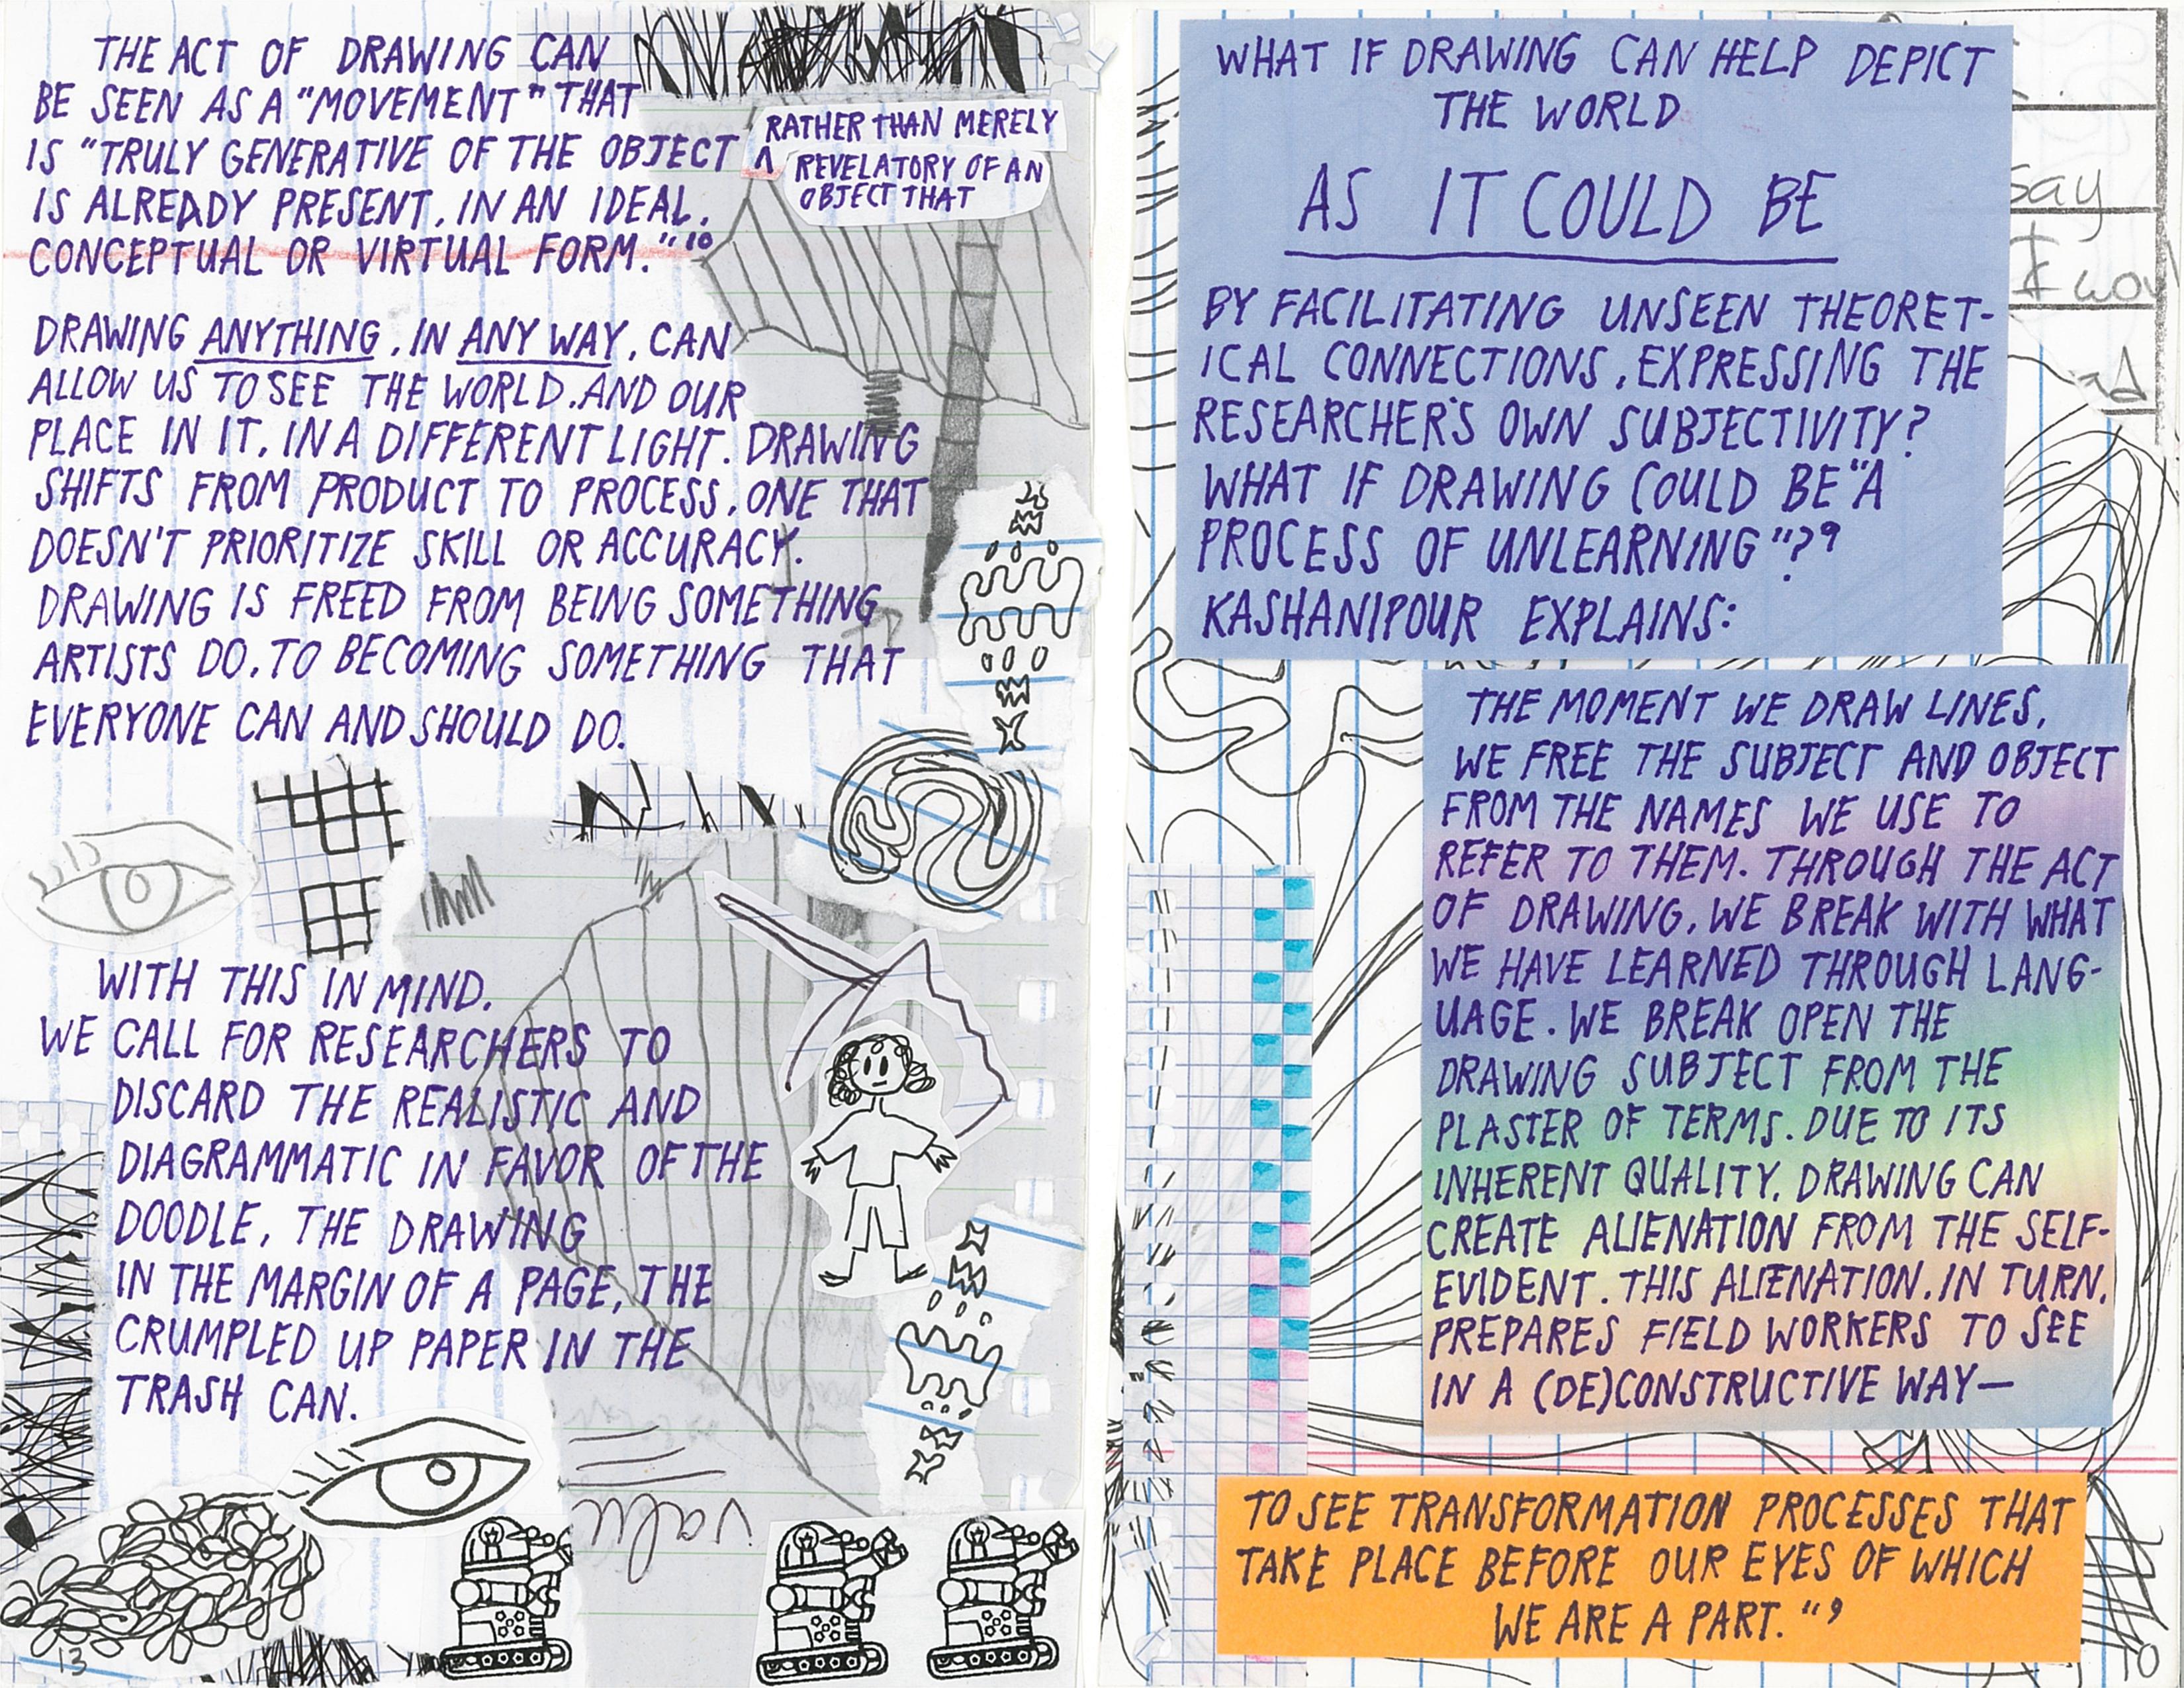 THE ACT OF DRAWING CAN
BE SEEN AS A "MOVEMENT" THAT
IS "TRULY GENERATIVE OF THE OBJECT
^ RATHER THAN MERELY
REVELATORY OF AN
OBJECT THAT
IS ALREADY PRESENT, IN AN IDEAL,
CONCEPTUAL OR VIRTUAL FORM."10
DRAWING ANYTHING, IN ANY WAY, CAN
ALLOW US TO SEE THE WORLD, AND OUR
PLACE IN IT, IN A DIFFERENT LIGHT. DRAWING
SHIFTS FROM PRODUCT TO PROCESS, ONE THAT
DOESN'T PRIORITIZE SKILL OR ACCURACY.
DRAWING IS FREED FROM BEING SOMETHING
ARTISTS DO, TO BECOMING SOMETHING THAT
EVERYONE CAN AND SHOULD DO.
WITH THIS IN MIND,
WE CALL FOR RESEARCHERS TO
DISCARD THE REALISTIC AND
DIAGRAMMATIC IN FAVOR OF THE
DOODLE, THE DRAWING
IN THE MARGIN OF A PAGE, THE
CRUMPLED UP PAPER IN THE
TRASH CAN.
13
WHAT IF DRAWING CAN HELP DEPICT
THE WORLD
AS IT COULD BE
BY FACILITATING UNSEEN THEORET-
ICAL CONNECTIONS, EXPRESSING THE
RESEARCHER'S OWN SUBJECTIVITY?
WHAT IF DRAWING COULD BE "A
PROCESS OF UNLEARNING"?9
KASHANIPOUR EXPLAINS:
say
I wou
THE MOMENT WE DRAW LINES,
WE FREE THE SUBJECT AND OBJECT
FROM THE NAMES WE USE TO
REFER TO THEM. THROUGH THE ACT
OF DRAWING, WE BREAK WITH WHAT
WE HAVE LEARNED THROUGH LANG-
UAGE. WE BREAK OPEN THE
DRAWING SUBJECT FROM THE
PLASTER OF TERMS. DUE TO ITS
INHERENT QUALITY, DRAWING CAN
CREATE ALIENATION FROM THE SELF-
EVIDENT. THIS ALIENATION, IN TURN,
PREPARES FIELD WORKERS TO SEE
IN A (DE)CONSTRUCTIVE WAY—
TO SEE TRANSFORMATION PROCESSES THAT
TAKE PLACE BEFORE OUR EYES OF WHICH
WE ARE A PART."9
10